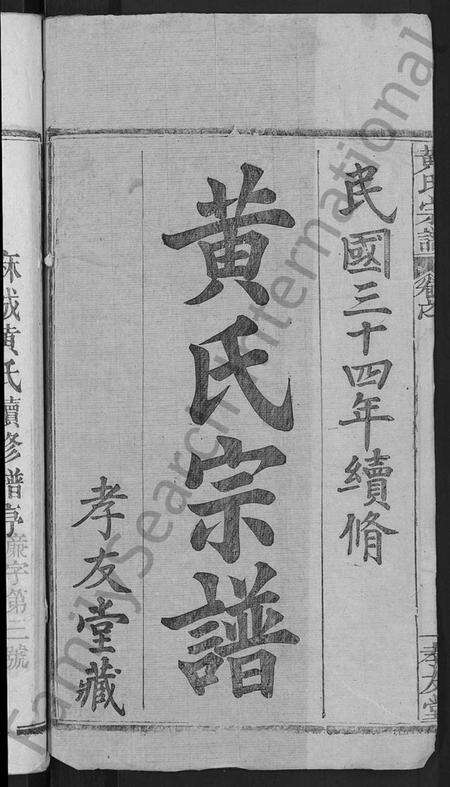 民國三十四年續脩
黃氏宗譜
孝友堂藏
黃氏宗譜
孝友堂
麻城黃氏續修譜序
廉字第二號
FamilySearch International